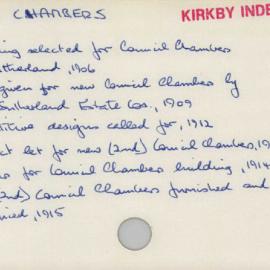 CHAMBERS
KIRKBY INDE
ing selected for Council Chambers
utherland, 1906
given for new Council Chambers by
Sutherland Estate Co., 1909
titive designs called for, 1912
ct let for new (2nd) Council Chambers, 19
for Council Chambers building, 1914
2nd) Council Chambers furnished and
1915